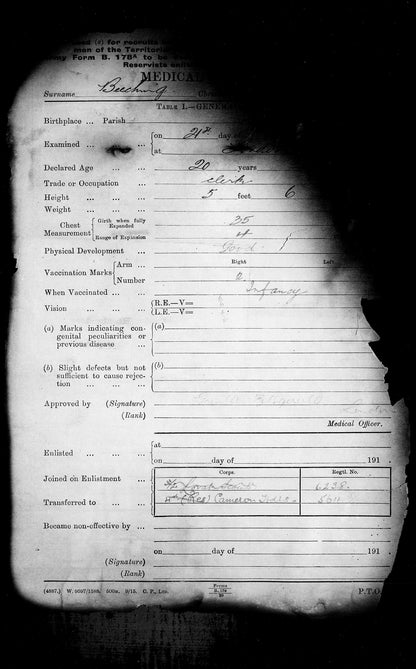 used (a) for recruits
men of the Territorial
Army Form B. 178A to be
Reservists enli
MEDICAL
Surname Beeching Chris
TABLE I.—GENERA
Birthplace ... Parish
Examined ... ... ... on 21st day
at
Declared Age ... ... 20 years
Trade or Occupation ... clerk
Height ... ... ... 5 feet 6
Weight ... ... ...
Chest Measurement Girth when fully Expanded 35
Range of Expansion
Physical Development ... Good
Right Left
Vaccination Marks Arm ...
Number
When Vaccinated ... ... Infancy
Vision ... ... R.E.—V=
L.E.—V=
(a) Marks indicating con- (a)
genital peculiarities or
previous disease ...
(b) Slight defects but not (b)
sufficient to cause rejec-
tion ... ... ...
Approved by (Signature)
(Rank) London
Medical Officer.
at
Enlisted ... ... ... on day of 191
Corps. Regtl. No.
Joined on Enlistment ... 6238
Transferred to ... ... (Res) Cameron 5611
Became non-effective by ...
on day of 191
(Signature)
(Rank)
(4887.) W. 5697/1588. 500M. 9/15. C. P., LTD. Forms B. 178 P.T.O.